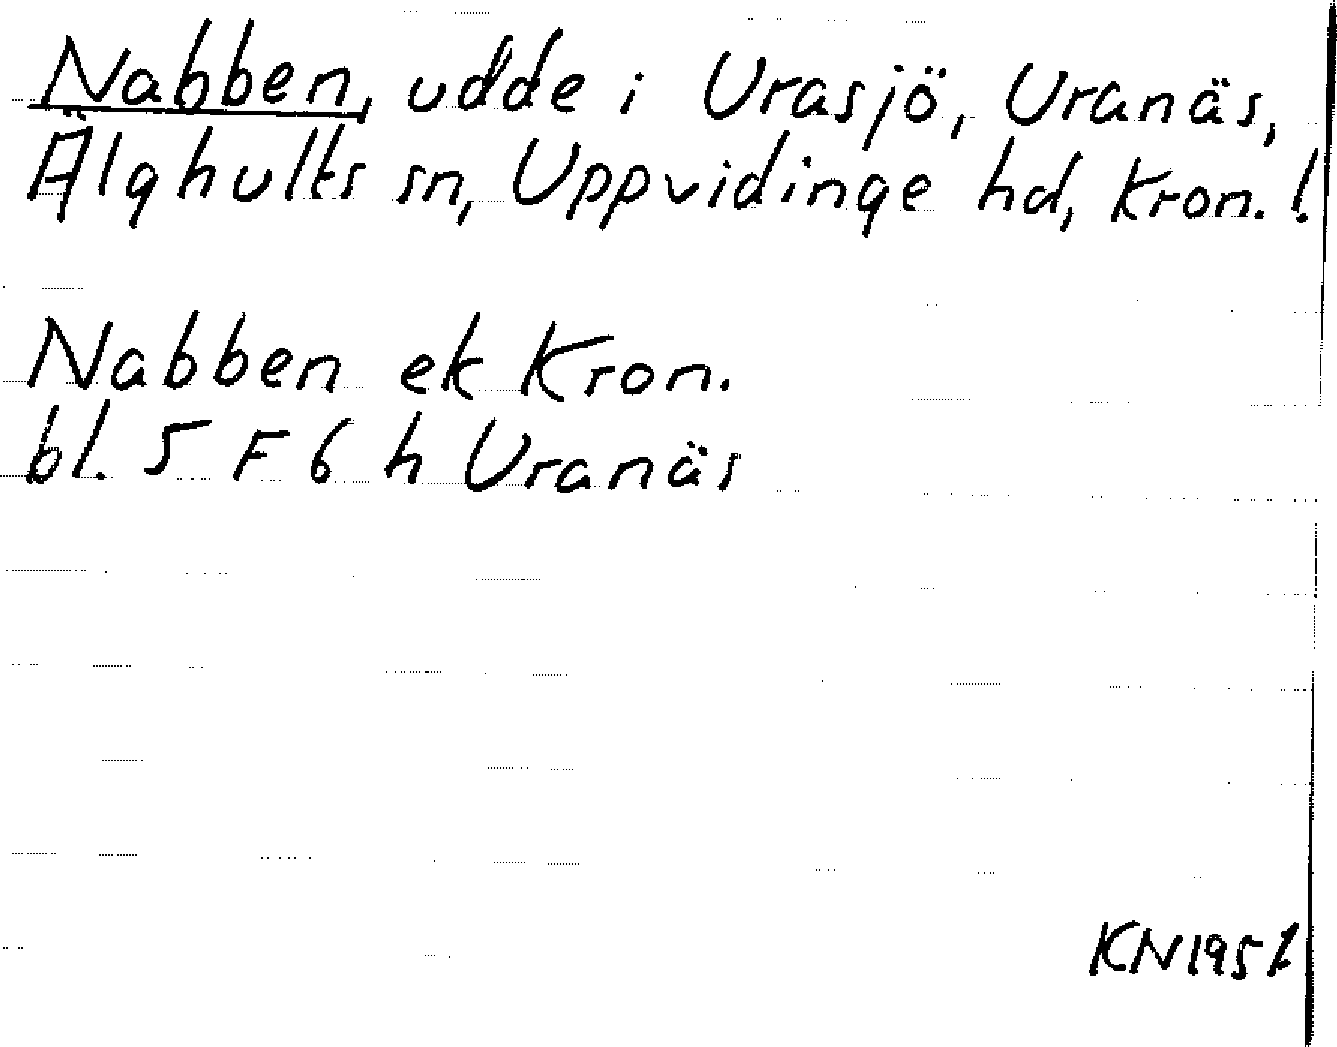 Nabben, udde i Urasjö, Uranäs,
Älghults sn, Uppvidinge hd, Kron. !
Nabben ek Kron.
bl. 5 F 6 h Uranäs
KN1951